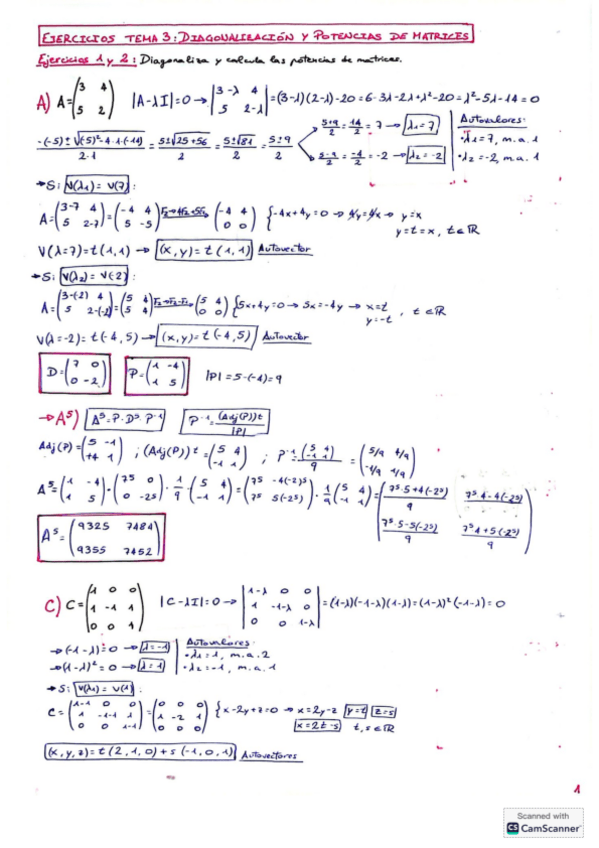 EJERCICIOS TEMA 3: DIAGONALIZACIÓN Y POTENCIAS DE MATRICES
Ejercicios 1 y 2: Diagonaliza y calcula las potencias de matrices.
A) A = (3 4 / 5 2) |A-λI|=0 → |3-λ 4 / 5 2-λ| = (3-λ)(2-λ)-20 = 6-3λ-2λ+λ²-20 = λ²-5λ-14 = 0
-(-5)±√(-5)²-4·1·(-14) / 2·1 = 5±√25+56 / 2 = 5±√81 / 2 = 5±9 / 2
5+9/2 = 14/2 = 7 → λ₁=7
5-9/2 = -4/2 = -2 → λ₂=-2
Autovalores:
•λ₁=7, m.a. 1
•λ₂=-2, m.a. 1
→ Si V(λ₁) = V(7):
A = (3-7 4 / 5 2-7) = (-4 4 / 5 -5) (-4 4 / 0 0) {-4x+4y=0 → 4y=4x → y=x
y=t=x, t∈ℝ
V(λ=7)=t(1,1) → (x,y)=t(1,1) Autovector
→ Si V(λ₂) = V(-2):
A = (3-(-2) 4 / 5 2-(-2)) = (5 4 / 5 4) F₂→F₂-F₁ (5 4 / 0 0) {5x+4y=0 → 5x=-4y → x=t
y=-t, t∈ℝ
V(λ=-2)=t(-4,5) → (x,y)=t(-4,5) Autovector
D = (7 0 / 0 -2) P = (1 -4 / 1 5) |P| = 5-(-4) = 9
→ A⁵) A⁵=P·D⁵·P⁻¹ P⁻¹ = (Adj(P))t / |P|
Adj(P) = (5 -1 / +4 1) ; (Adj(P))t = (5 4 / -1 1) ; P⁻¹ = (5 4 / -1 1) / 9 = (5/9 4/9 / -1/9 1/9)
A⁵ = (1 -4 / 1 5) · (7⁵ 0 / 0 -2⁵) · 1/9 (5 4 / -1 1) = (7⁵ -4(-2)⁵ / 7⁵ 5(-2⁵)) · 1/9 (5 4 / -1 1) = (7⁵·5+4(-2⁵) / 9 7⁵·4-4(-2⁵) / 9
7⁵·5-5(-2⁵) / 9 7⁵·4+5(-2⁵) / 9)
A⁵ = (9325 7484 / 9355 7452)
C) C = (1 0 0 / 1 -1 1 / 0 0 1) |C-λI|=0 → |1-λ 0 0 / 1 -1-λ 0 / 0 0 1-λ| = (1-λ)(-1-λ)(1-λ) = (1-λ)²(-1-λ) = 0
→ (-1-λ)=0 → λ=-1
→ (1-λ)²=0 → λ=1
Autovalores:
•λ₁=1, m.a. 2
•λ₂=-1, m.a. 1
→ Si V(λ₁) = V(1):
C = (1-1 0 0 / 1 -1-1 1 / 0 0 1-1) = (0 0 0 / 1 -2 1 / 0 0 0) {x-2y+z=0 → x=2y-z y=t z=s
x=2t-s t,s∈ℝ
(x,y,z)=t(2,1,0)+s(-1,0,1) Autovectores
1
Scanned with
CS CamScanner